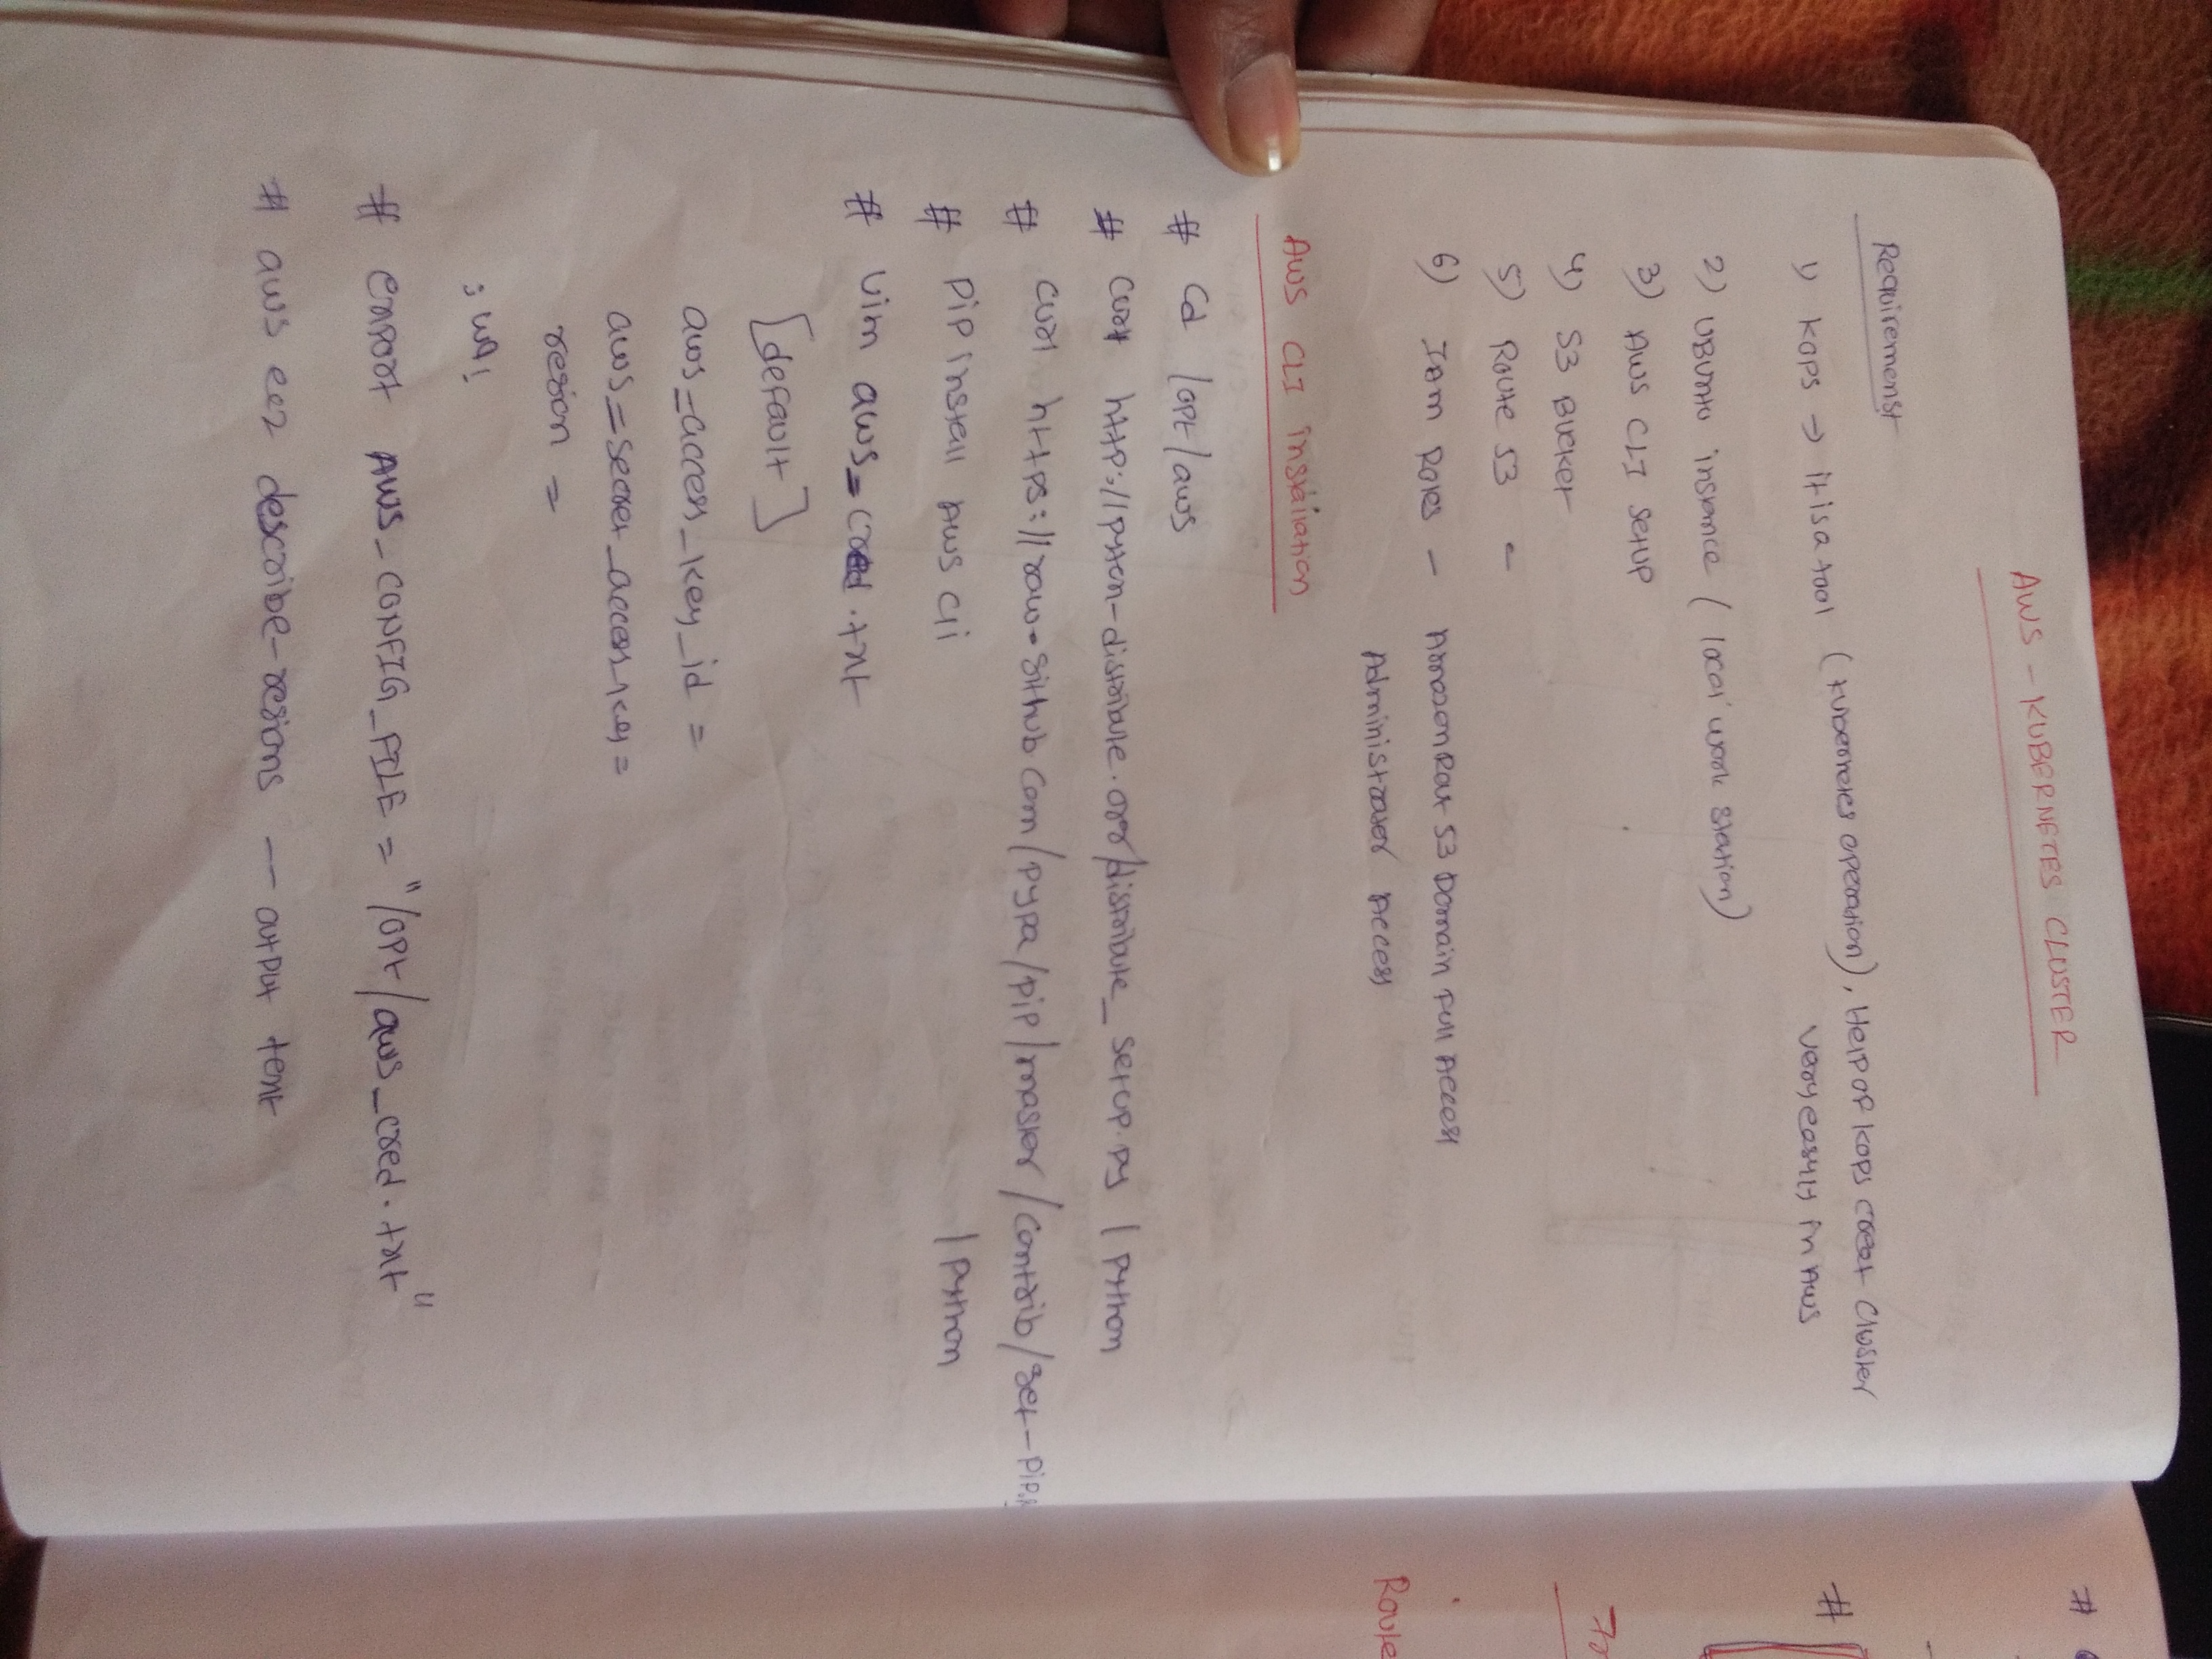 AWS - KUBERNETES CLUSTER
Requiremenst
1) KOPS → it is a tool (Kubernetes operation), Help of KOPS creat Cluster
very easyly in AWS
2) UBUntu instance ( local work station)
3) AWS CLI SetUP
4) S3 BUCKet
5) Route 53 -
6) IAM Roles - Amazon Rout 53 Domain Full Access
Administrater Access
AWS CLI installation
# Cd /opt/aws
# Curl http://pyten-distribute.org/distribute_setup.py | python
# Curl https://raw.github com/pypa/pip/master/contrib/get-pip.
| python
# Pip install AWS cli
# Vim aws_cred.txt
[default]
aws_access_key_id =
aws_secret_access_key =
region =
:wq!
# export AWS_CONFIG_FILE = "/opt/aws_cred.txt"
# aws ec2 describe-regions -- output text
#
#
Route